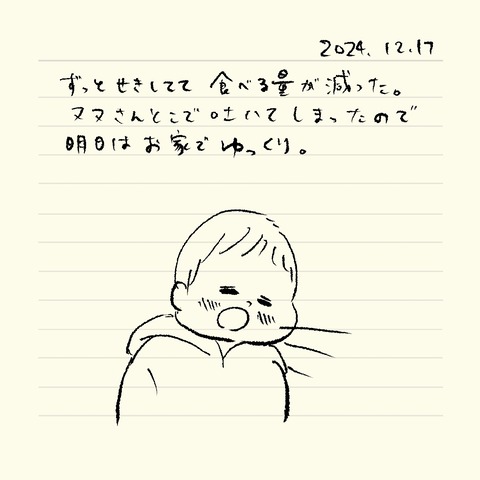 2024.12.17
ずっとせきしてて 食べる量が減った。
ヌヌさんとこで吐いてしまったので
明日はお家でゆっくり。